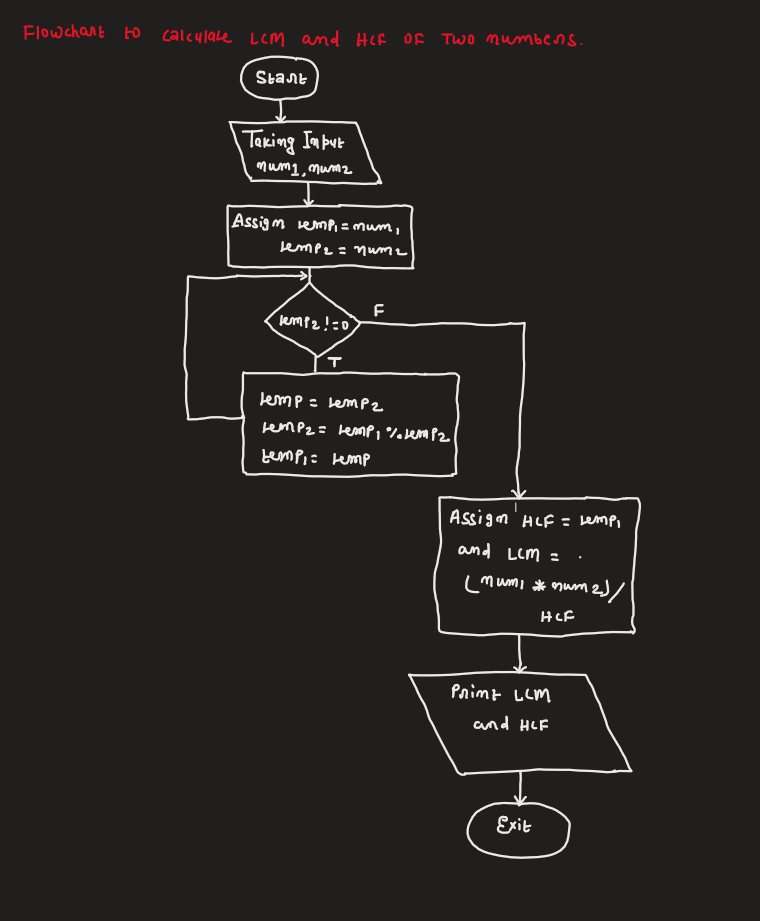 Flowchart to calculate LCM and HCF OF Two numbers.
Start
Taking Input
num1, num2
Assign temp1 = num1
temp2 = num2
temp2 != 0
F
T
temp = temp2
temp2 = temp1 % temp2
temp1 = temp
Assign HCF = temp1
and LCM =
(num1 * num2) /
HCF
Print LCM
and HCF
Exit